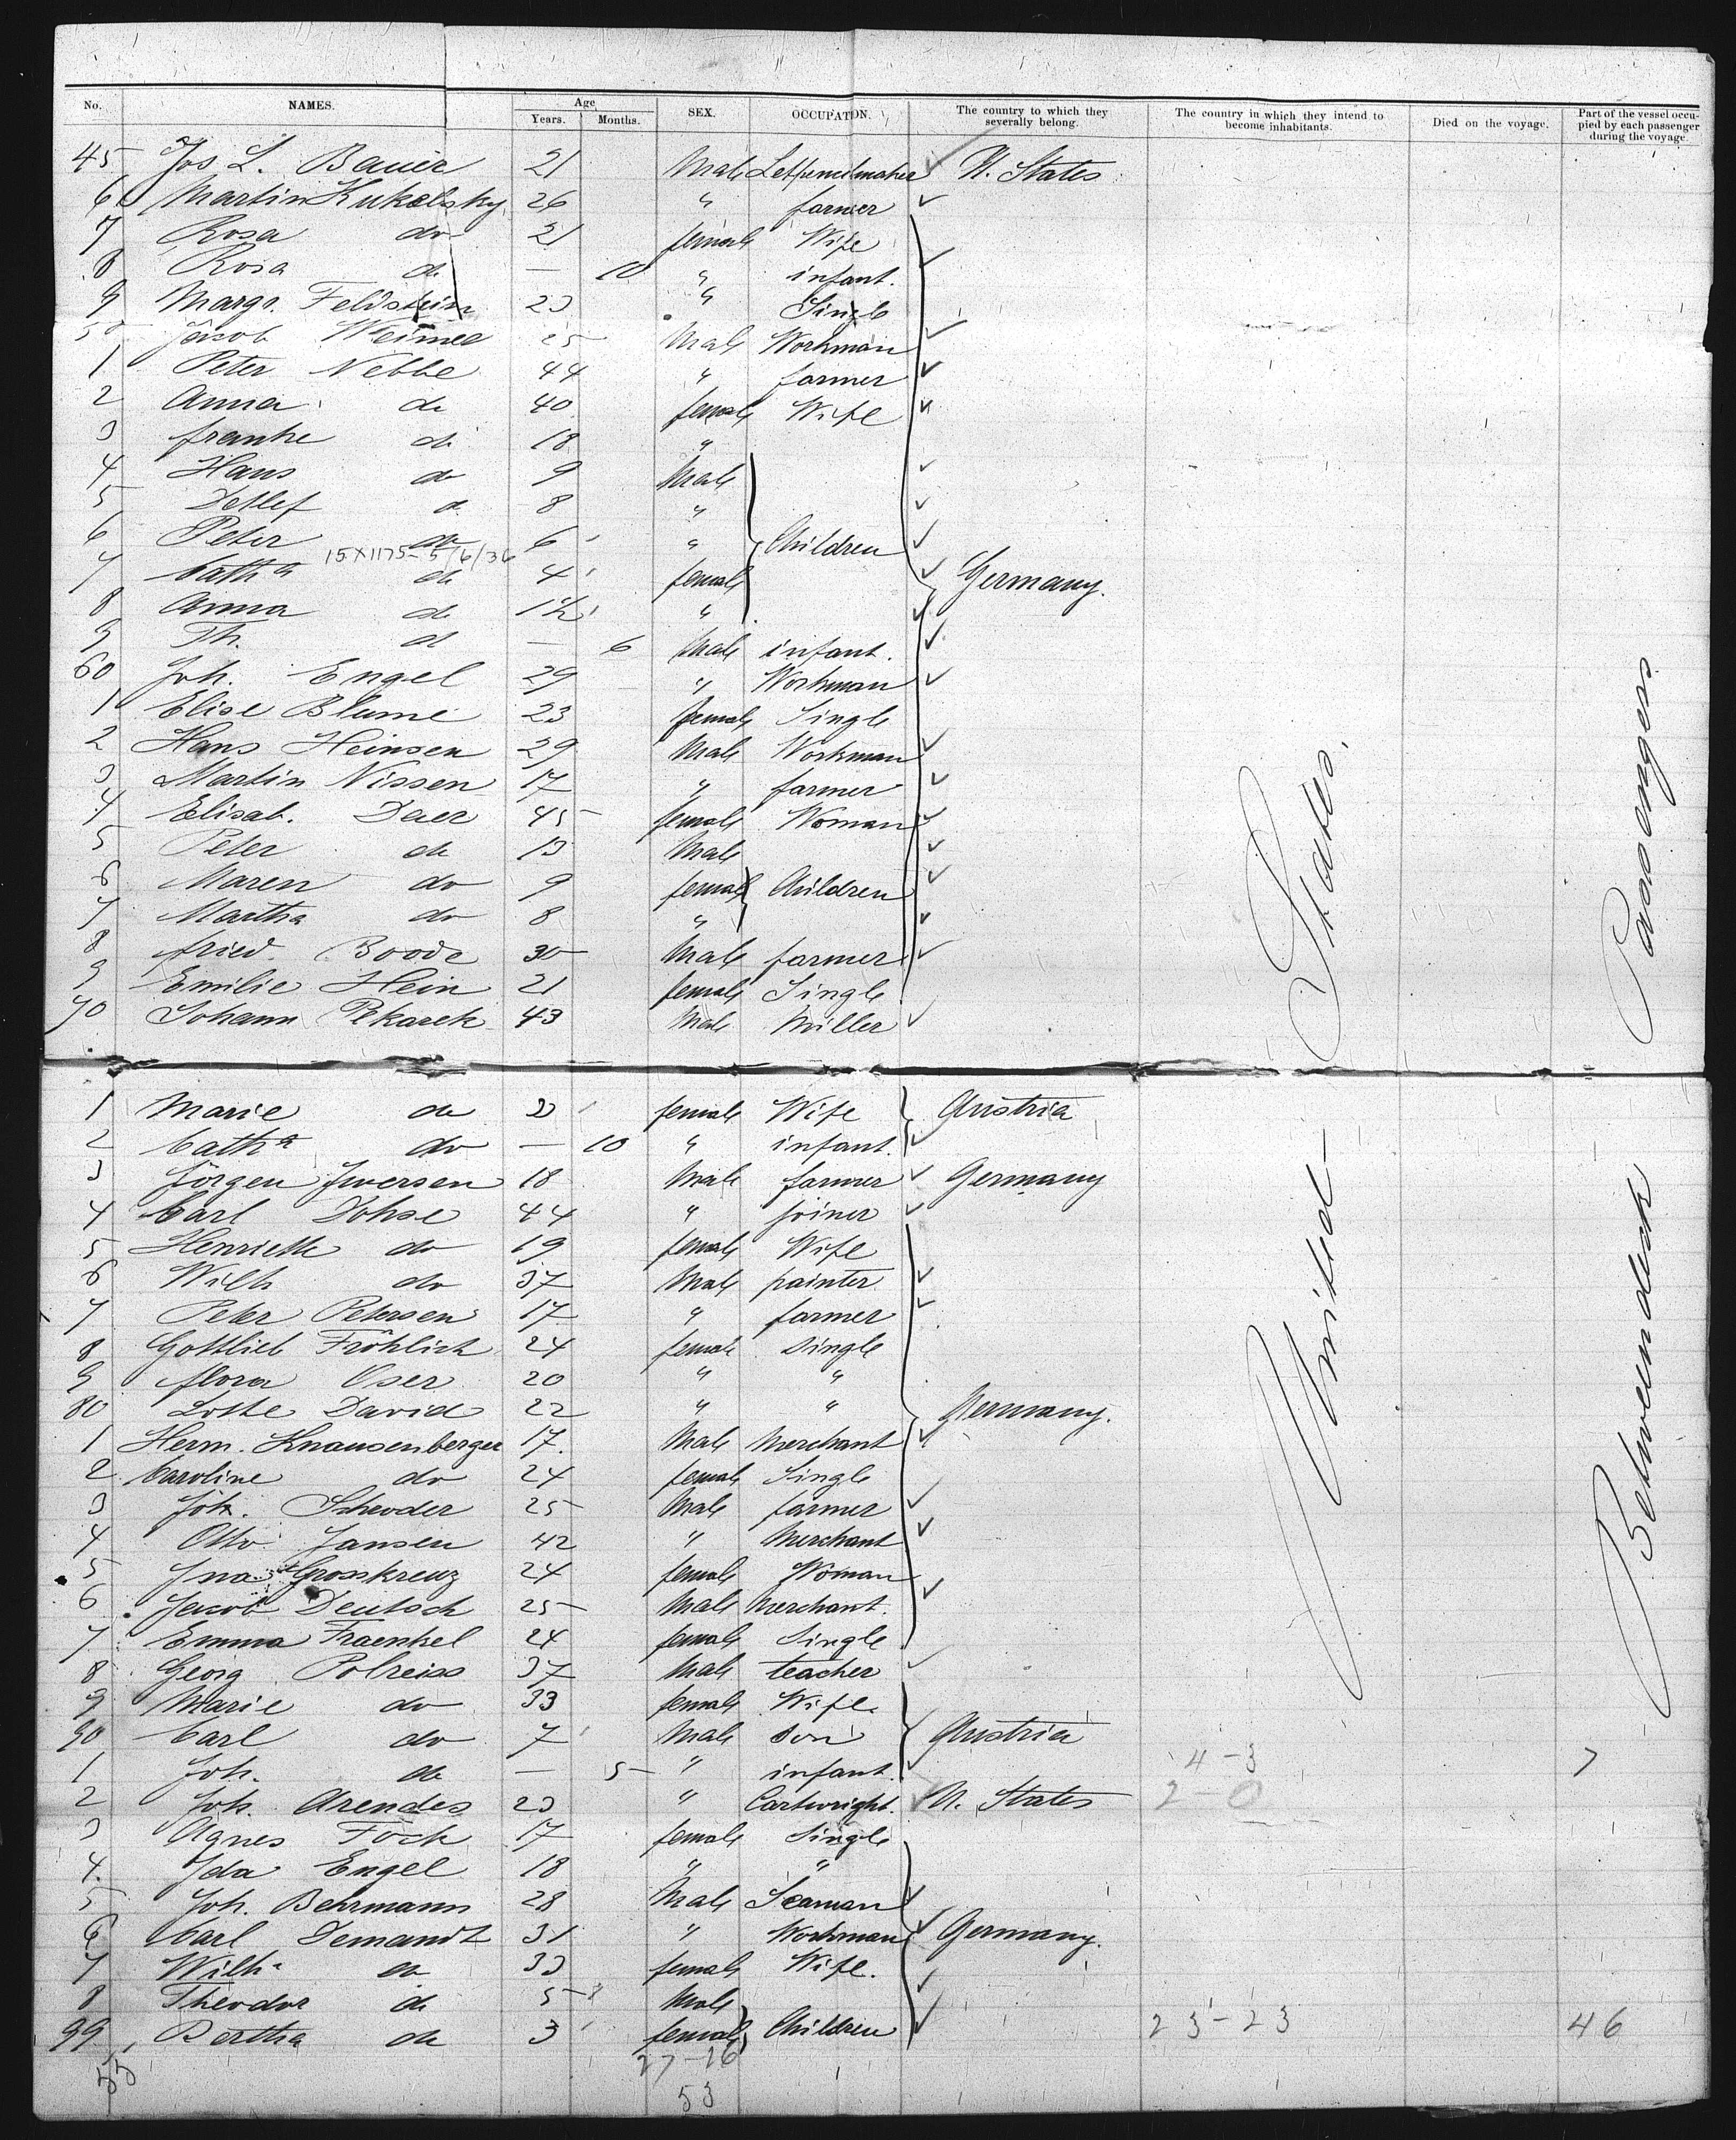 No. NAMES. Age Years. Months. SEX. OCCUPATION. The country to which they severally belong. The country in which they intend to become inhabitants. Died on the voyage. Part of the vessel occupied by each passenger during the voyage.
45 Jos L. Bauer 21 Male U. States
6 Martin Kukolsky 26 " farmer
7 Rosa do 21 female Wife
8 Rosa do — 10 " infant.
9 Margr. Feldstein 23 " Single
50 Jacob 25 Male Workman
1 Peter Nebbe 44 " farmer
2 Anna do 40 female Wife
3 franke do 18 "
4 Hans do 9 Male
5 Detlef do 8 "
6 Peter do 6 " Children
15X1175-5/6/36
7 Catha do 4 female Germany.
8 Anna do 1½ "
9 Th. do — 6 Male infant.
60 Joh. Engel 29 " Workman
1 Elise Blume 23 female Single
2 Hans Heinsen 29 Male Workman
3 Martin Nissen 17 " farmer
4 Elisab. Daer 45 female Woman
5 Peter do 13 Male
6 Maren do 9 female Children
7 Martha do 8 "
8 fried. Boode 30 Male farmer
9 Emilie Hein 21 female Single
70 Johann Pekarek 43 Male Miller
1 Marie do female Wife Austria
2 Catha do — 10 " infant.
3 Jörgen Jwersen 18 Male farmer Germany
4 Carl Dohse 44 " joiner
5 Henriette do 19 female Wife
6 Wilh do 37 Male painter
7 Peter Petersen 17 " farmer
8 Gottlieb Fröhlich 24 female Single
9 flora Oser 20 " "
80 Lotte David 22 " " Germany.
1 Herm. Knausenberger 17. Male Merchant
2 Caroline do 24 female Single
3 Joh. Schroder 25 Male farmer
4 Otto Jansen 42 " Merchant
5 Grosskreuz 24 female Woman
6 Jacob Deutsch 25 Male Merchant.
7 Emma Fraenkel 24 female Single
8 Georg Polreiss 37 Male teacher
9 Marie do 33 female Wife.
90 Carl do 7 Male Son Austria
1 Joh. do — 5 " infant.
2 Joh. Arendes 23 " Cartwright. U. States
3 Agnes Fock 17 female Single
4. Ida Engel 18 " "
5 Joh. Behrmann 28 Male Seaman
6 Carl Demandt 31 " Workman Germany.
7 Wilh. do 33 female Wife.
8 Theodor do 5 Male
99 Bertha do 3 female Children
United States.
Betweendeck Passengers
4-3
2 0
7
23-23
46
27-26
53